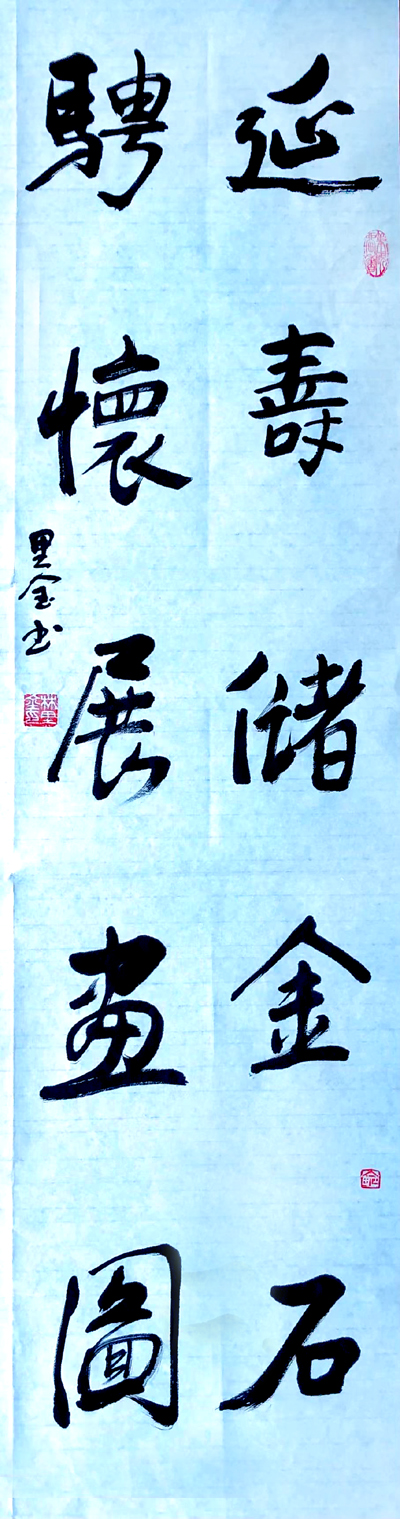 延壽儲金石
騁懷展畫圖
里金书